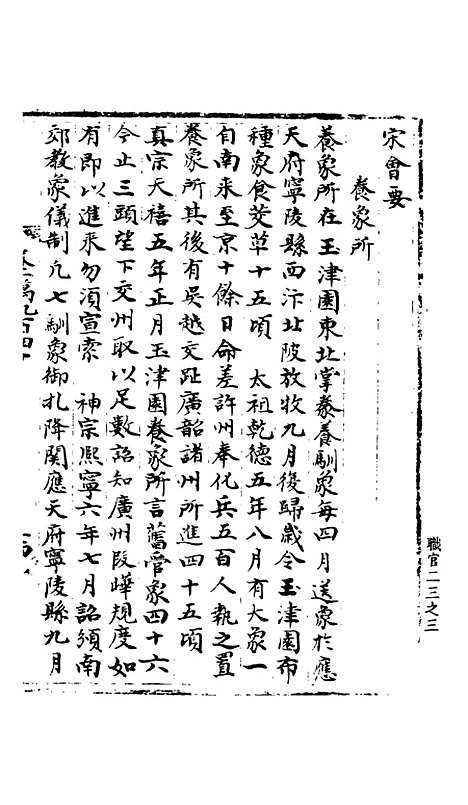 宋會要
養象所
養象所在玉津園東北掌豢養馴象每四月送象於應
天府寧陵縣西汴北陂放牧九月後歸歲令玉津園布
種象食茭草十五頃　太祖乾德五年八月有大象一
自南來至京十餘日命差許州奉化兵五百人執之置
養象所其後有吳越交趾廣韶諸州所進四十五頃
真宗天禧五年正月玉津園養象所言舊管象四十六
今止三頭望下交州取以足數詔知廣州段曄規度如
有即以進來勿須宣索　神宗熙寧六年七月詔頒南
郊教象儀制凡七馴象御札降関應天府寧陵縣九月
職官二三之三